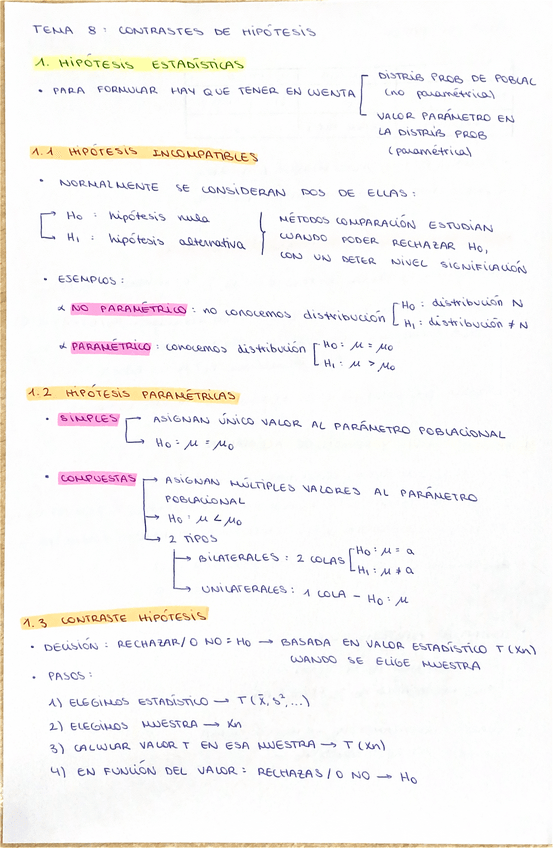 TEMA 8: CONTRASTES DE HIPÓTESIS
1. HIPÓTESIS ESTADÍSTICAS
• PARA FORMULAR HAY QUE TENER EN CUENTA
DISTRIB PROB DE POBLAC
(no paramétrica)
VALOR PARÁMETRO EN
LA DISTRIB PROB
(paramétrica)
1.1 HIPÓTESIS INCOMPATIBLES
• NORMALMENTE SE CONSIDERAN DOS DE ELLAS:
→ H₀: hipótesis nula
→ H₁: hipótesis alternativa
MÉTODOS COMPARACIÓN ESTUDIAN
CUANDO PODER RECHAZAR H₀,
CON UN DETER NIVEL SIGNIFICACIÓN
• EJEMPLOS:
α NO PARAMÉTRICO: no conocemos distribución
H₀: distribución N
H₁: distribución ≠ N
α PARAMÉTRICO: conocemos distribución
H₀: μ = μ₀
H₁: μ > μ₀
1.2 HIPÓTESIS PARAMÉTRICAS
• SIMPLES → ASIGNAN ÚNICO VALOR AL PARÁMETRO POBLACIONAL
→ H₀: μ = μ₀
• COMPUESTAS → ASIGNAN MÚLTIPLES VALORES AL PARÁMETRO
POBLACIONAL
→ H₀: μ < μ₀
→ 2 TIPOS
→ BILATERALES: 2 COLAS
H₀: μ = a
H₁: μ ≠ a
→ UNILATERALES: 1 COLA - H₀: μ
1.3 CONTRASTE HIPÓTESIS
• DECISIÓN: RECHAZAR/O NO = H₀ → BASADA EN VALOR ESTADÍSTICO T(Xn)
CUANDO SE ELIGE MUESTRA
• PASOS:
1) ELEGIMOS ESTADÍSTICO → T(x̄, s²,...)
2) ELEGIMOS MUESTRA → Xn
3) CALCULAR VALOR T EN ESA MUESTRA → T(Xn)
4) EN FUNCIÓN DEL VALOR: RECHAZAS/O NO → H₀